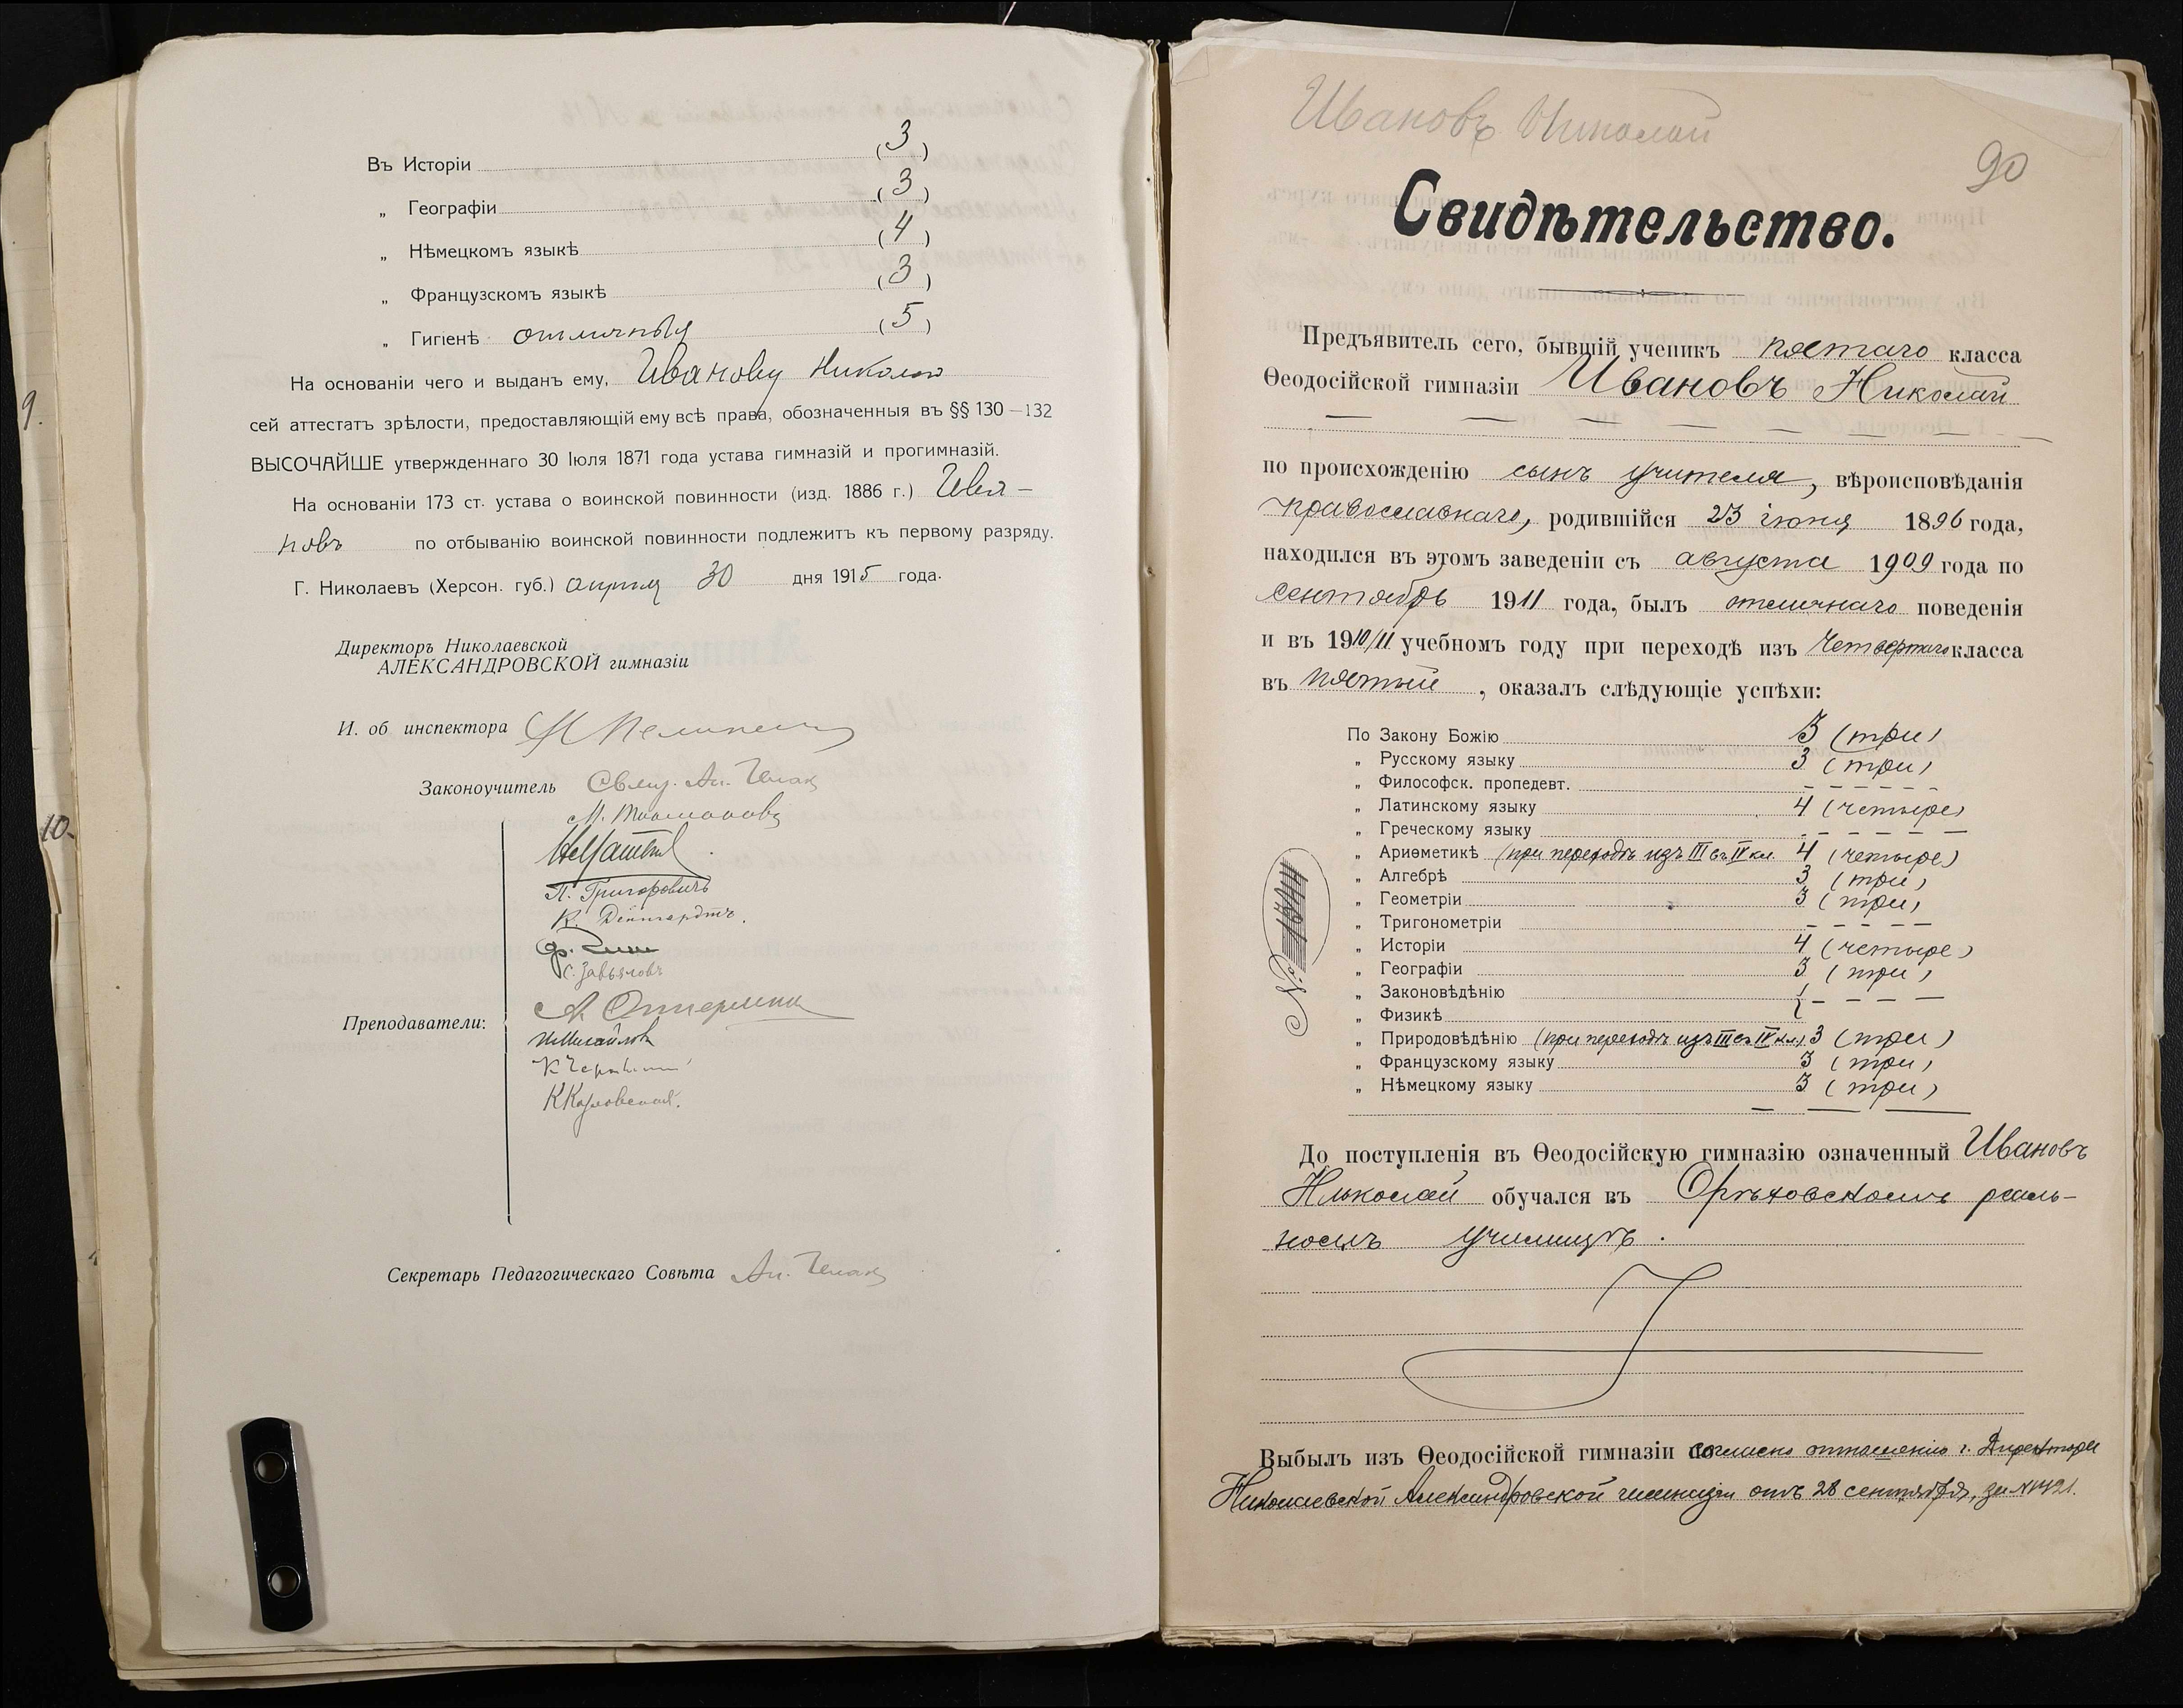 9.
10.
Въ Исторіи (3)
„ Географіи (3)
„ Нѣмецкомъ языкѣ (4)
„ Французскомъ языкѣ (3)
„ Гигіенѣ отличныя (5)
На основаніи чего и выданъ ему, Иванову Николаю
сей аттестатъ зрѣлости, предоставляющій ему всѣ права, обозначенныя въ §§ 130—132
ВЫСОЧАЙШЕ утвержденнаго 30 Іюля 1871 года устава гимназій и прогимназій.
На основаніи 173 ст. устава о воинской повинности (изд. 1886 г.) Ива-
новъ по отбыванію воинской повинности подлежитъ къ первому разряду.
Г. Николаевъ (Херсон. губ.) апрѣля 30 дня 1915 года.
Директоръ Николаевской
АЛЕКСАНДРОВСКОЙ гимназіи
И. об инспектора
Законоучитель
П. Григоровичъ
С. Завьяловъ
Преподаватели:
К Козловская.
Секретарь Педагогическаго Совѣта
Ивановъ Николай
90
Свидѣтельство.
Предъявитель сего, бывшій ученикъ пятаго класса
Ѳеодосійской гимназіи Ивановъ Николай
по происхожденію сынъ учителя, вѣроисповѣданія
православнаго, родившійся 23 іюня 1896 года,
находился въ этомъ заведеніи съ августа 1909 года по
сентябрь 1911 года, былъ отличнаго поведенія
и въ 1910/11 учебномъ году при переходѣ изъ четвертаго класса
въ пятый, оказалъ слѣдующіе успѣхи:
По Закону Божію 3 (три)
„ Русскому языку 3 (три)
„ Философск. пропедевт. – – – – –
„ Латинскому языку 4 (четыре)
„ Греческому языку – – – – –
„ Ариѳметикѣ (при переходѣ изъ III въ IV кл. 4 (четыре)
„ Алгебрѣ 3 (три)
„ Геометріи 3 (три)
„ Тригонометріи – – – – –
„ Исторіи 4 (четыре)
„ Географіи 3 (три)
„ Законовѣдѣнію
„ Физикѣ – – – –
„ Природовѣдѣнію (при переходѣ изъ III въ IV кл.) 3 (три)
„ Французскому языку 3 (три)
„ Нѣмецкому языку 3 (три)
№
До поступленія въ Ѳеодосійскую гимназію означенный Ивановъ
Николай обучался въ Орѣховскомъ реаль-
номъ училищѣ.
Выбылъ изъ Ѳеодосійской гимназіи согласно отношенію г. Директора
Николаевской Александровской гимназіи отъ 28 сентября, за №1421.